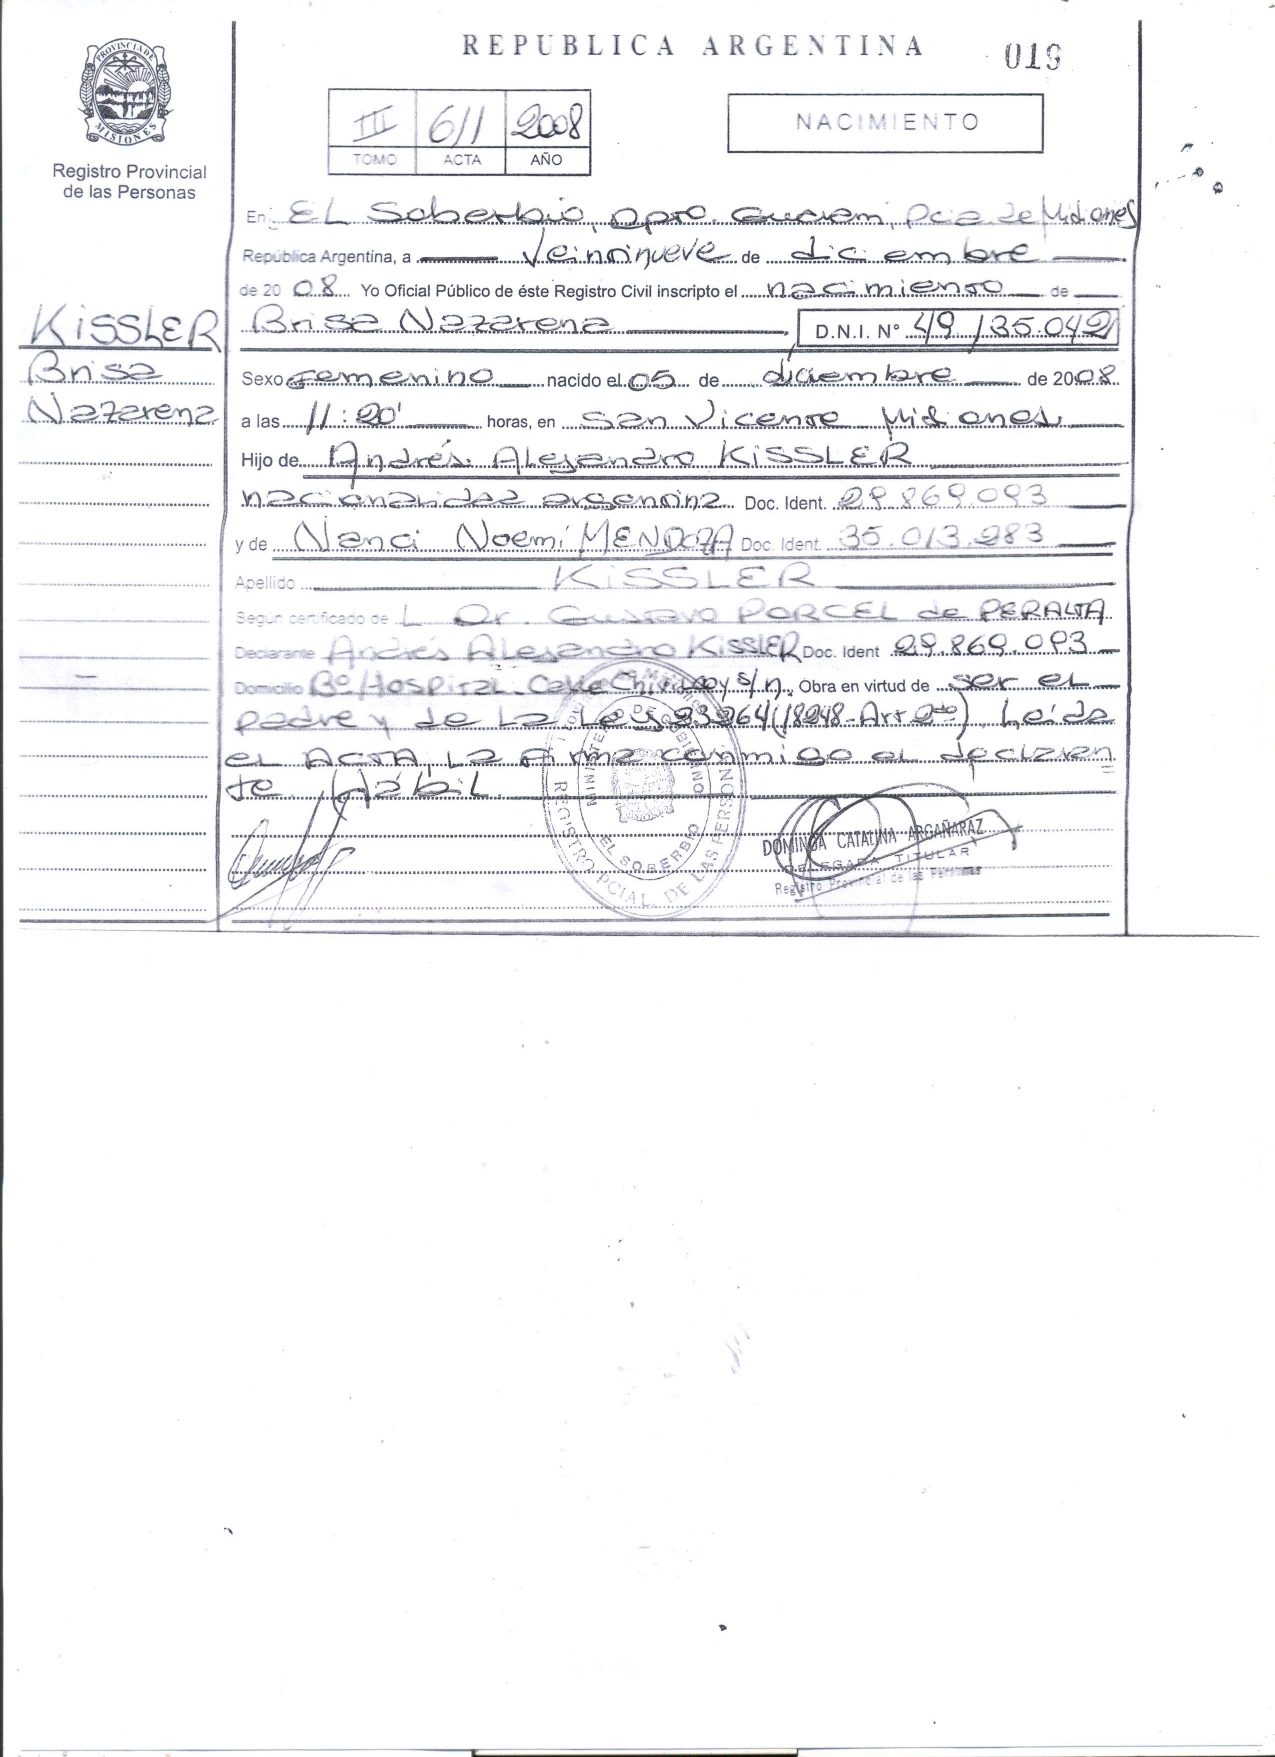 REPUBLICA ARGENTINA
019
PROVINCIA DE MISIONES
Registro Provincial
de las Personas
III 611 2008
TOMO ACTA AÑO
NACIMIENTO
En: EL Soberbio, Dpto. Guaraní, Pcia de Misiones
República Argentina, a Veintinueve de diciembre
de 2008 Yo Oficial Público de éste Registro Civil inscripto el nacimiento de
KISSLER
Brisa
Nazarena
Brisa Nazarena D.N.I. N° 49.135.042
Sexo femenino nacido el 05 de diciembre de 2008
a las 11:20' horas, en San Vicente Misiones
Hijo de Andrés Alejandro KISSLER
nacionalidad argentina Doc. Ident. 29.869.093
y de Nanci Noemí MENDOZA Doc. Ident. 35.013.283
Apellido KISSLER
Según certificado de L Dr. Gustavo PORCEL de PERALTA
Declarante Andrés Alejandro KISSLER Doc. Ident 29.869.093
Domicilio B° Hospital - Calle s/n., Obra en virtud de ser el
padre y de La Ley 23264 (18248-Art 2do) Leída
el ACTA, La firma conmigo el declaran
te Hábil
MINISTERIO DE GOBIERNO
EL SOBERBIO
REGISTRO PCIAL. DE LAS PERSON
DOMINGA CATALINA ARGAÑARAZ
DELEGADA TITULAR
Registro Provincial de las Personas